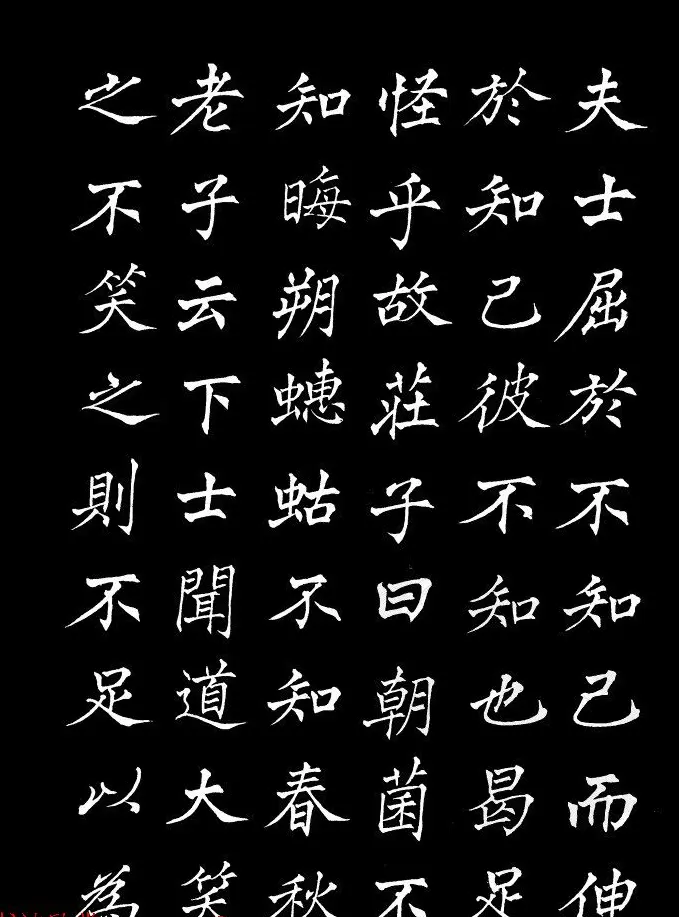 夫士屈於不知己而伸
於知己彼不知也曷足
怪乎故莊子曰朝菌不
知晦朔蟪蛄不知春秋
老子云下士聞道大笑
之不笑之則不足以為